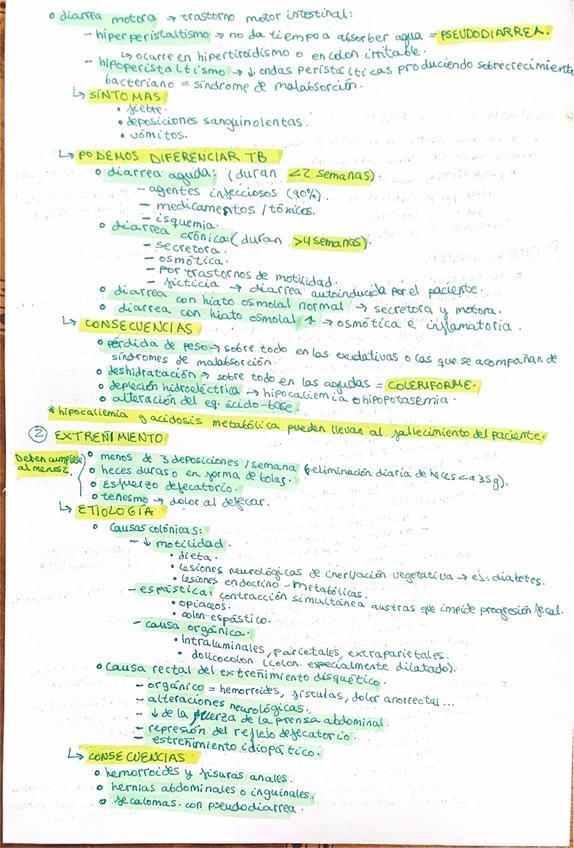 o diarrea motora → trastorno motor intestinal:
- hiperperistaltismo → no da tiempo a absorber agua = PSEUDODIARREA.
↳ ocurre en hipertiroidismo o en colon irritable.
- hipoperistaltismo → ↓ ondas peristálticas produciendo sobrecrecimiento
bacteriano = síndrome de malabsorción.
↳ SÍNTOMAS
• fiebre.
• deposiciones sanguinolentas.
• vómitos.
↳ PODEMOS DIFERENCIAR TB
o diarrea aguda: (duran <2 semanas).
- agentes infecciosos (90%)
- medicamentos / tóxicos.
- isquemia.
o diarrea crónica (duran >4 semanas).
- secretora.
- osmótica.
- por trastornos de motilidad.
- ficticia → diarrea autoinducida por el paciente.
o diarrea con hiato osmolal normal → secretora y motora.
o diarrea con hiato osmolal ↑ → osmótica e inflamatoria.
↳ CONSECUENCIAS
o pérdida de peso → sobre todo en las exudativas o las que se acompañan de
síndromes de malabsorción.
o deshidratación → sobre todo en las agudas = COLERIFORME.
o depleción hidroeléctrica → hipocaliemia o hipopotasemia.
o alteración del eq. ácido-base.
* hipocaliemia y acidosis metabólica pueden llevar al fallecimiento del paciente.
② EXTREÑIMIENTO
Deben cumplirse al menos 2.
o menos de 3 deposiciones / semana (eliminación diaria de heces < a 35g).
o heces duras o en forma de bolas.
o esfuerzo defecatorio.
o tenesmo → dolor al defecar.
↳ ETIOLOGÍA
o Causas colónicas:
- ↓ motilidad.
• dieta.
• lesiones neurológicas de inervación vegetativa → ej: diabetes.
• lesiones endocrino-metabólicas.
- espástica: contracción simultánea austras que impide progresión fecal.
• opiáceos.
• colon espástico.
- causa orgánica.
• intraluminales, parietales, extraparietales.
• dolicocolon (colon especialmente dilatado).
o Causa rectal del extreñimiento disquético.
- orgánico = hemorroides, fístulas, dolor anorrectal...
- alteraciones neurológicas.
- ↓ de la fuerza de la prensa abdominal.
- represión del reflejo defecatorio.
- estreñimiento idiopático.
↳ CONSECUENCIAS
o hemorroides y fisuras anales.
o hernias abdominales o inguinales.
o fecalomas con pseudodiarrea.